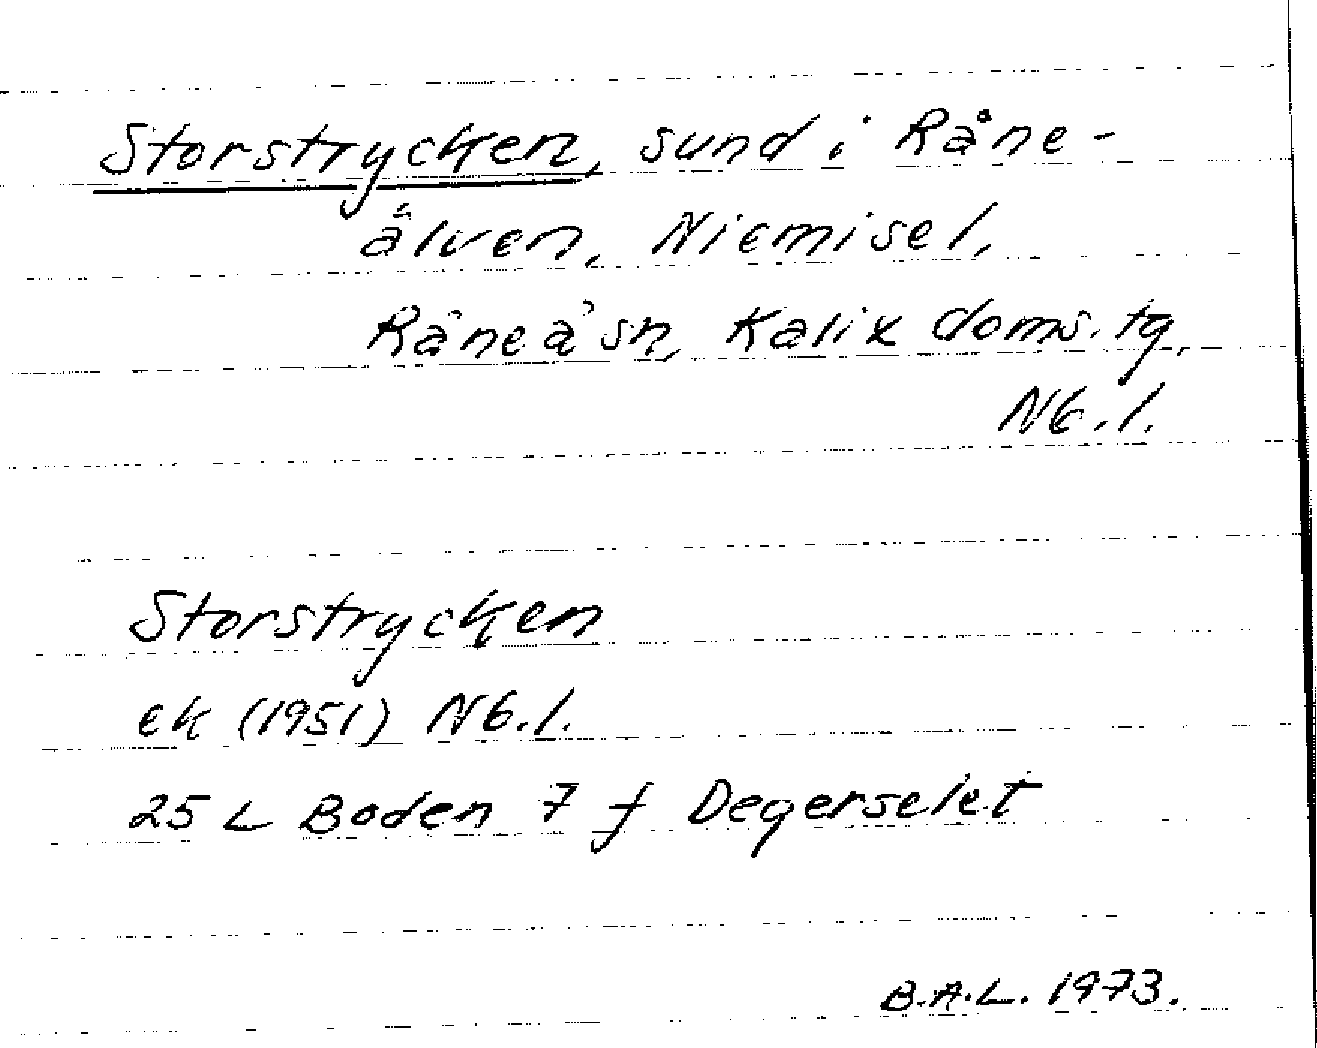 Storstrycken, sund i Råne-
älven, Niemisel,
Råneå sn, Kalix doms. tg,
Nb. l.
Storstrycken
ek (1951) Nb. l.
25 L Boden 7 f Degerselet
B.A.L. 1973.